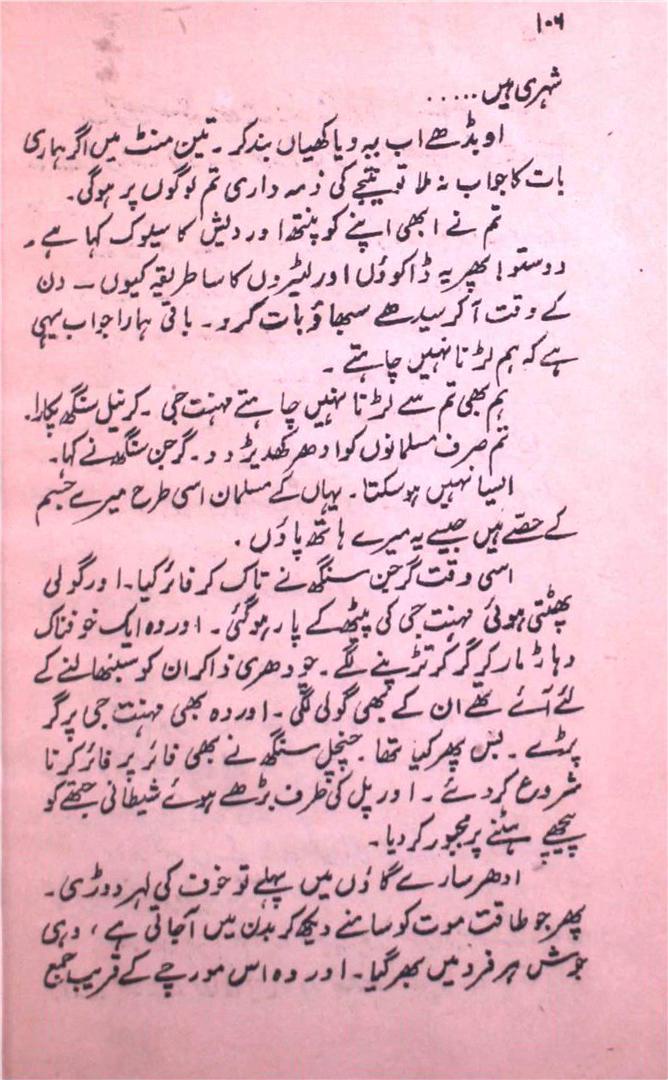 ۱۰۶
شہری ہیں .....
او بڈھے اب یہ ویاکھیاں بند کر ۔ تین منٹ میں اگر ہماری
بات کا جواب نہ ملا تو نتیجے کی ذمہ داری تم لوگوں پر ہوگی۔
تم نے ابھی اپنے کو پنتھ اور دیش کا سیوک کہا ہے ۔
دوستو! پھر یہ ڈاکوؤں اور لٹیروں کا سا طریقہ کیوں ۔ دن
کے وقت آکر سیدھے سبھاؤ بات کرو ۔ باقی ہمارا جواب یہی
ہے کہ ہم لڑنا نہیں چاہتے ۔
ہم بھی تم سے لڑنا نہیں چاہتے مہنت جی ۔ کرنیل سنگھ پکارا۔
تم صرف مسلمانوں کو ادھر کھدیڑ دو ۔ گرجن سنگھ نے کہا۔
ایسا نہیں ہو سکتا ۔ یہاں کے مسلمان اسی طرح میرے جسم
کے حصّے ہیں جیسے یہ میرے ہاتھ پاؤں ۔
اسی وقت گرجن سنگھ نے تاک کر فائر کیا ۔ اور گولی
پھٹتی ہوئی مہنت جی کی پیٹھ کے پار ہوگئی ۔ اور وہ ایک خوفناک
دہاڑ مار کر گر کر تڑپنے لگے ۔ چودھری ذاکر ان کو سنبھالنے کے
لئے آئے تھے ان کے بھی گولی لگی ۔ اور وہ بھی مہنت جی پر گر
پڑے ۔ بس پھر کیا تھا ۔ چنچل سنگھ نے بھی فائر پر فائر کرنا
شروع کر دئے ۔ اور پل کی طرف بڑھے ہوئے شیطانی جتھے کو
پیچھے ہٹنے پر مجبور کر دیا ۔
ادھر سارے گاؤں میں پہلے تو خوف کی لہر دوڑی ۔
پھر جو طاقت موت کو سامنے دیکھ کر بدن میں آجاتی ہے ، وہی
جوش ہر فرد میں بھر گیا ۔ اور وہ اس مورچے کے قریب جمع